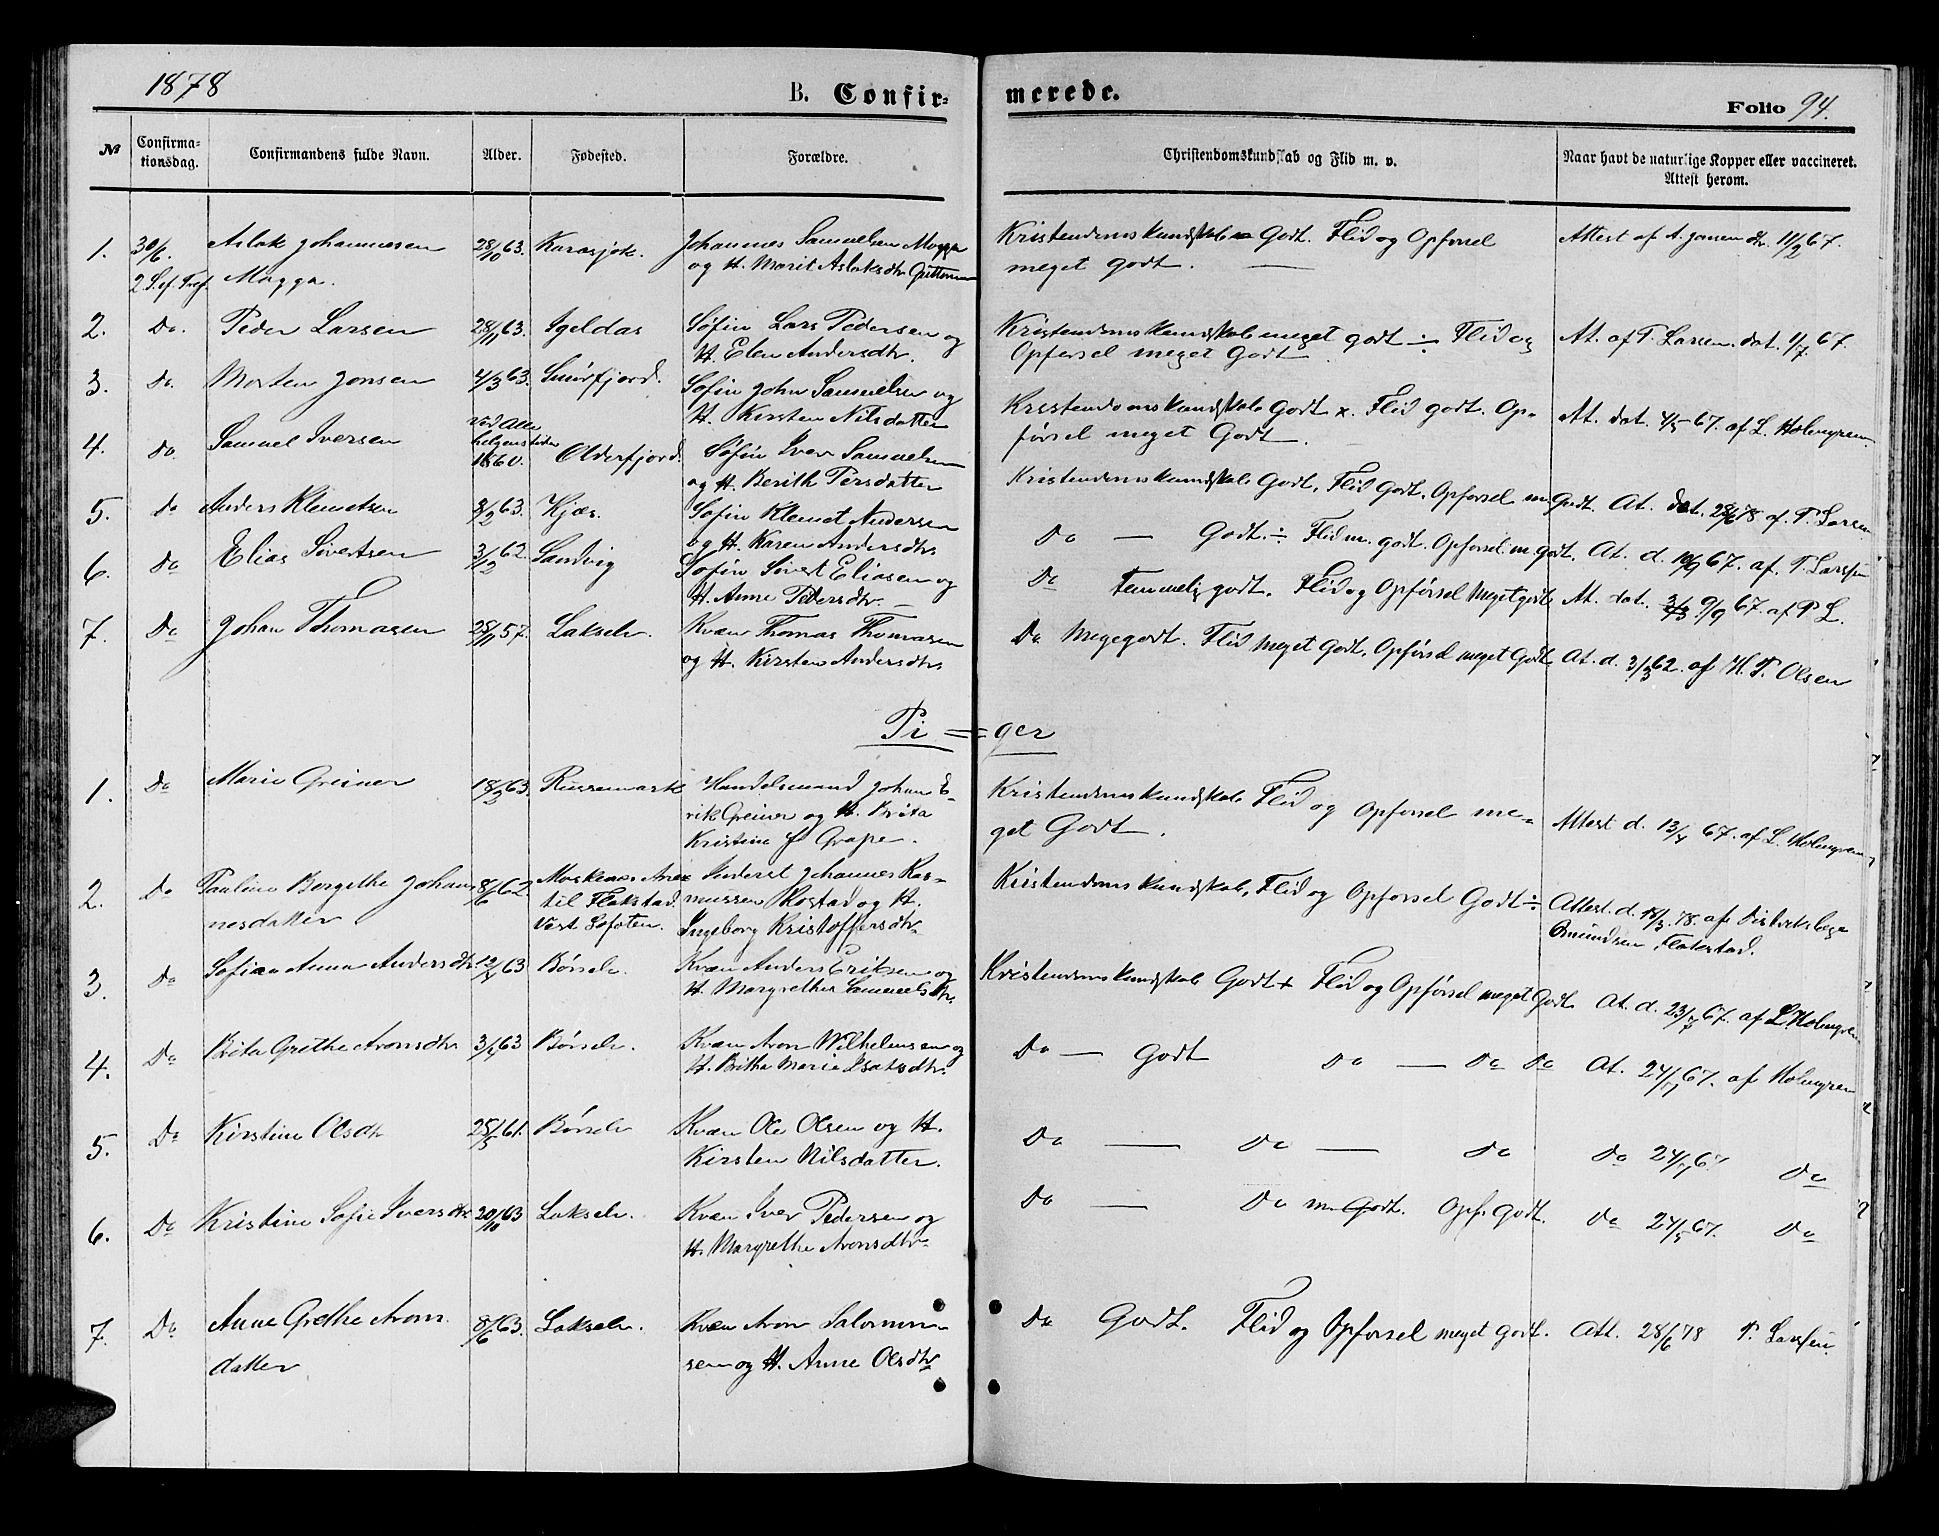 1878
B. Confir= merede.
Folio 94.
№ Confirma=tionsdag. Confirmandens fulde Navn. Alder. Fødested. Forældre. Christendomskundskab og Flid m. v. Naar havt de naturlige Kopper eller vaccineret. Attest herom.
1. 30/6. Aslak Johannesen 28/10 63. Karasjok. Johannes Samuelsen Magga Kristendomskundskab Godt. Flid og Opførsel Attest af A. Jonsen dat. 11/2 67.
2 S. ef. Tref. Magga. og H. Marit Aslaksdtr Guttorm meget godt.
2. Do. Peder Larsen 28/11 63. Igeldas Søfin Lars Pedersen og Kristendomskundskab meget godt ÷ Flid og At. af P. Larsen. dat. 1/7 67.
H. Elen Andersdtr. Opførsel meget Godt
3. Do. Morten Jonsen 4/3 63. Smörfjord. Søfin John Samuelsen og Kristendomskundskab Godt x. Flid godt. Op- At. dat. 4/5 67. af L. Holmgren
H. Kirsten Nilsdatter førsel meget Godt.
4. do. Samuel Iversen Ved Alle helgenstider 1860. Olderfjord. Søfin Iver Samuelsen Kristendomskundskab Godt, Flid Godt. Opførsel m Godt. At. dat. 28/6 78 af. P. Larsen
og H. Berith Persdatter
5. Do Anders Klemetsen 3/2 63. Kjæs. Søfin Klemet Andersen Do — Godt ÷ Flid m. godt. Opførsel m godt. At. d. 10/9 67. af. P. Larssen
og H. Karen Andersdtr
6. Do Elias Sivertsen 3/12 62. Sandvig Søfin Sivert Eliasen og Do Temmelig godt. Flid og Opførsel Meget godt At. dat. 9/9 67. af P L.
H. Anne Pedersdtr.
7. Do Johan Thomasen 28/11 57. Lakselv. Kvæn Thomas Thomasen Do Megegodt. Flid Meget Godt, Opførsel meget Godt At. d. 3/3 62. af H. P. Olsen
og H. Kirsten Andersdtr
Pi = ger
1. Do Marie Greiner 18/2 63. Russemark Handelsmand Johan E- Kristendomskundskab Flid og Opførsel me-
rik Greiner og H. Brita get Godt. Attest d. 13/5 67. af L. Holmgren
Kristine f. Grape.
2. Do Pauline Bergithe Johan 8/6 62 Moskenes Anex Inderst Johannes Ras- Kristendomskundskab, Flid og Opførsel Godt ÷ Attest. d. 18/3 78. af. Distrikslæge
nesdatter til Flakstad. mussen Rostad og H. Amundsen Flakstad.
Vest Lofoten. Ingeborg Kristoffersdtr
3. Do Sofian Anna Andersdtr 12/4 63 Børselv. Kvæn Anders Eriksen og Kristendomskundskab Godt + Flid og Opførsel meget Godt At. d. 23/7 67. af L Holmgren
H. Margrethe Samuelsdtr.
4. Do Brita Grethe Aronsdtr 3/4 63 Børselv. Kvæn Aron Wilhelmsen og Do — Godt Do — Do Do At. 24/7 67. af Holmgren
H. Britha Marie Isaksdtr.
5. Do Kirstine Olsdtr 25/5 61. Børselv Kvæn Ole Olsen og H. Do — Do — Do Do 24/7 67 Do
Kirsten Nilsdatter.
6. Do Kristine Sofie Iversdtr 20/10 63 Lakselv. Kvæn Iver Pedersen og Do — Do m. Godt. Opf. Godt. Do 24/5 67. Do
H. Margrethe Aronsdtr
7. Do Anne Grethe Arons 8/6 63. Lakselv. Kvæn Aron Salomon Do Godt. Flid og Opførsel meget godt. Att. 28/6 78 P. Larssen.
datter sen og H. Anne Olsdtr